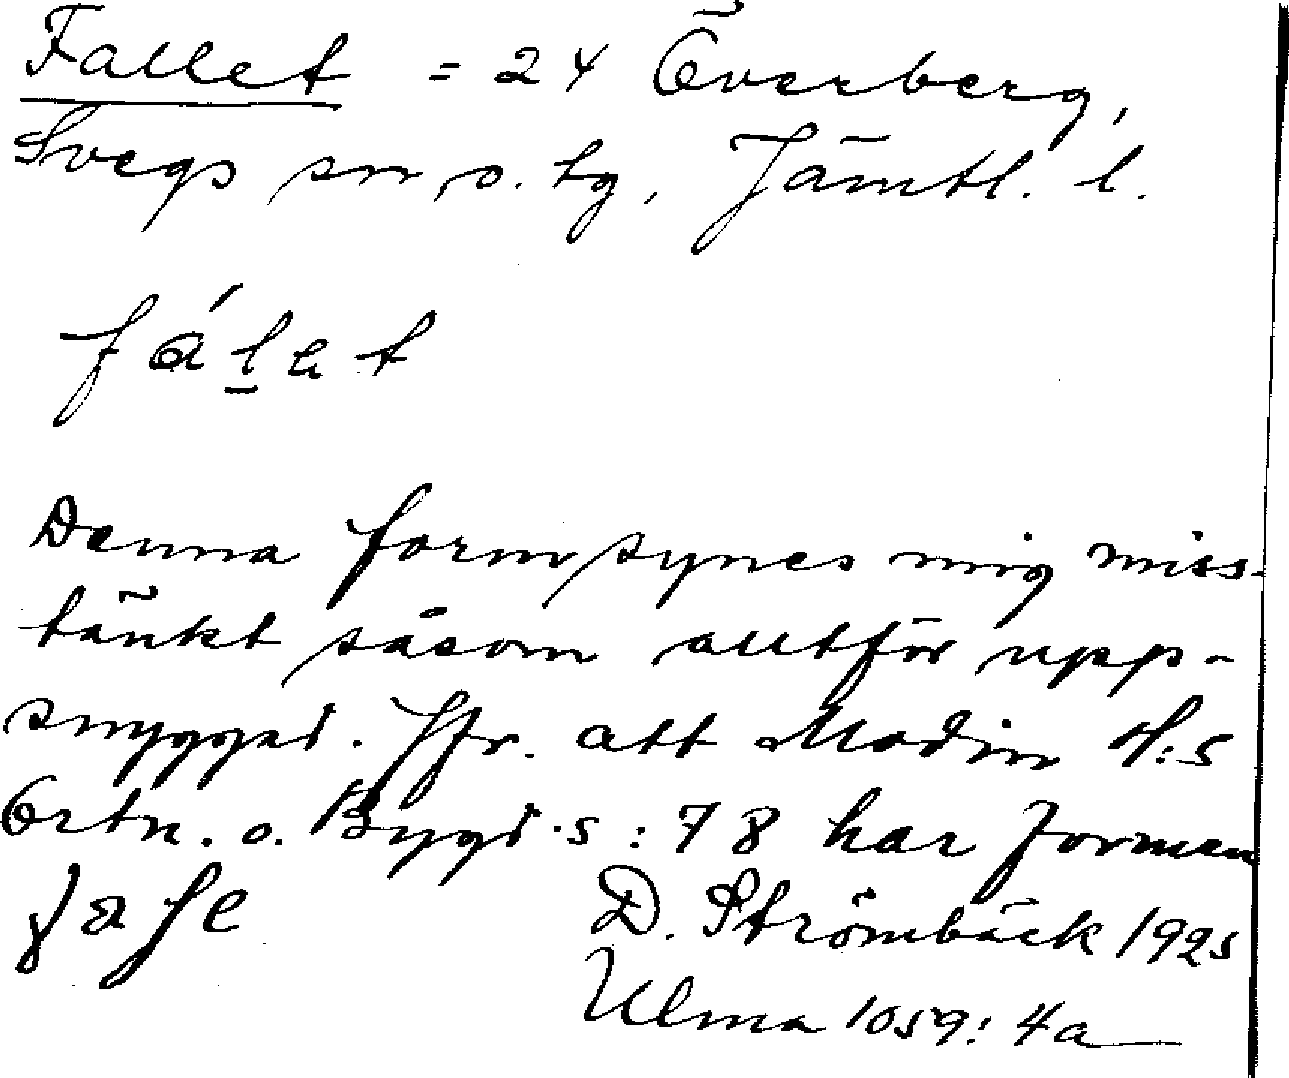 Fallet = 24 Överberg,
Svegs sn o. tg, Jämtl. l.
fálet
Denna form synes mig miss-
tänkt såsom alltför upp-
snyggad. Jfr. att Modin H:s
Ortn. o. Bygd s: 78 har formen
D. Strömbäck 1925
Ulma 1059: 4a